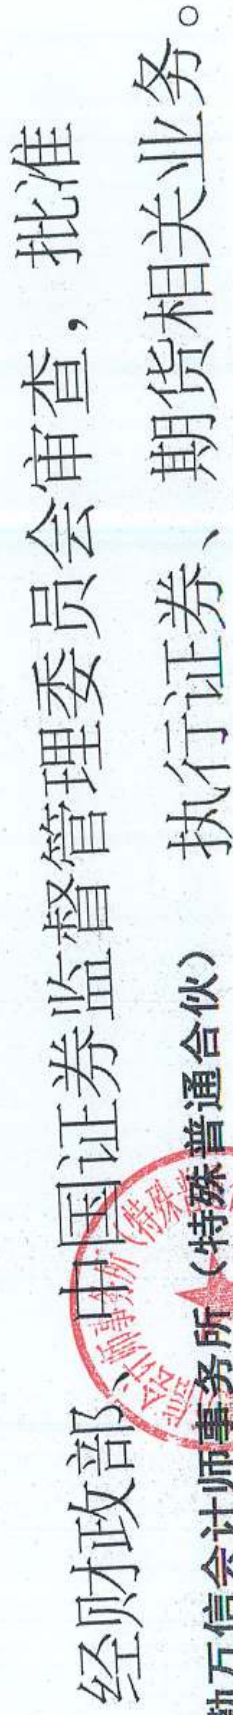 经财政部、中国证券监督管理委员会审查，批准
万信会计师事务所（特殊普通合伙） 执行证券、期货相关业务。
会计师事务所（特殊普